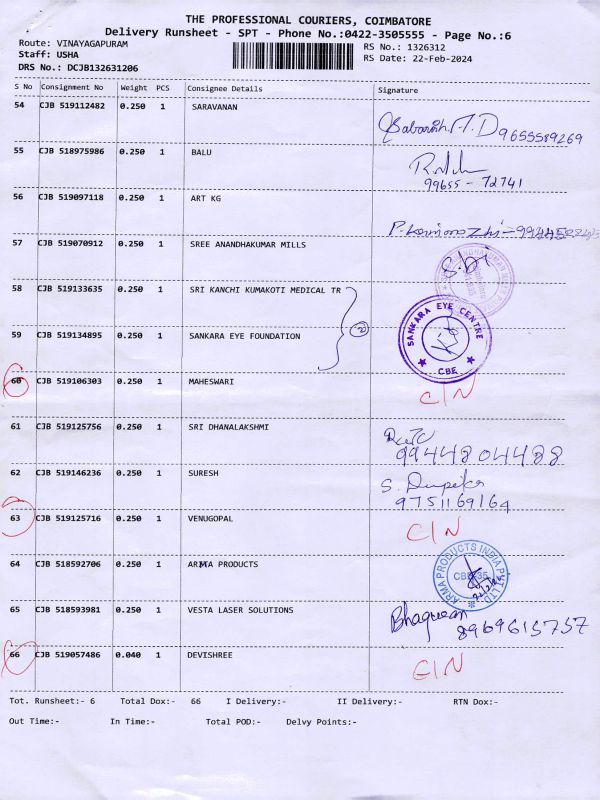 THE PROFESSIONAL COURIERS, COIMBATORE
Delivery Runsheet - SPT - Phone No.:0422-3505555 - Page No.:6
Route: VINAYAGAPURAM
RS No.: 1326312
Staff: USHA
RS Date: 22-Feb-2024
DRS No.: DCJB132631206
S No Consignment No Weight PCS Consignee Details Signature
54 CJB 519112482 0.250 1 SARAVANAN
9655589269
55 CJB 518975986 0.250 1 BALU
99655 - 72741
56 CJB 519097118 0.250 1 ART KG
57 CJB 519070912 0.250 1 SREE ANANDHAKUMAR MILLS
58 CJB 519133635 0.250 1 SRI KANCHI KUMAKOTI MEDICAL TR
2
59 CJB 519134895 0.250 1 SANKARA EYE FOUNDATION
SANKARA EYE CENTRE
CBE
60 CJB 519106303 0.250 1 MAHESWARI
C/N
61 CJB 519125756 0.250 1 SRI DHANALAKSHMI
9944804488
62 CJB 519146236 0.250 1 SURESH
9751169164
63 CJB 519125716 0.250 1 VENUGOPAL
C/N
64 CJB 518592706 0.250 1 ARMA PRODUCTS
ARMA PRODUCTS INDIA PVT LTD
65 CJB 518593981 0.250 1 VESTA LASER SOLUTIONS
8969615757
66 CJB 519057486 0.040 1 DEVISHREE
C/N
Tot. Runsheet:- 6 Total Dox:- 66 I Delivery:- II Delivery:- RTN Dox:-
Out Time:- In Time:- Total POD:- Delvy Points:-